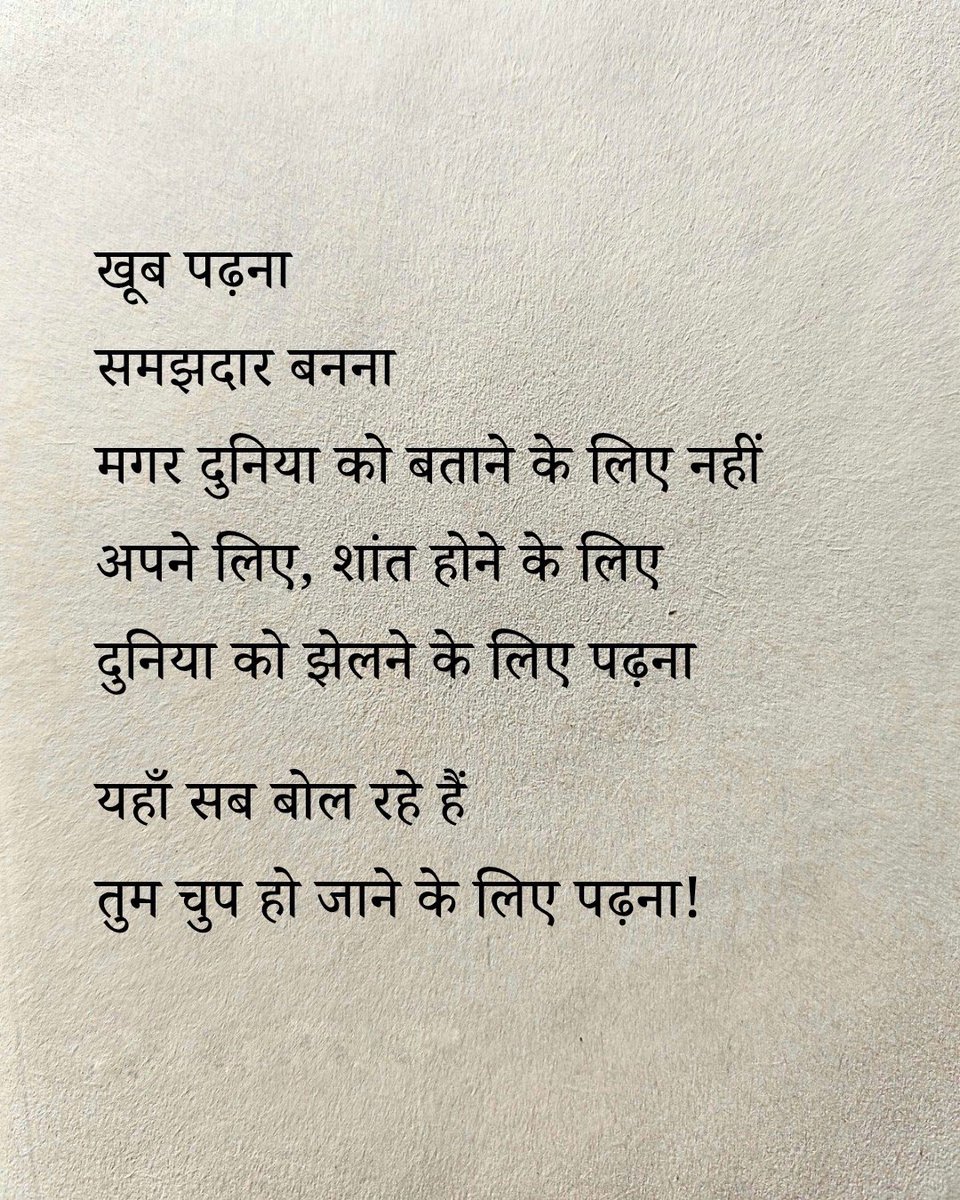 खूब पढ़ना
समझदार बनना
मगर दुनिया को बताने के लिए नहीं
अपने लिए, शांत होने के लिए
दुनिया को झेलने के लिए पढ़ना
यहाँ सब बोल रहे हैं
तुम चुप हो जाने के लिए पढ़ना!